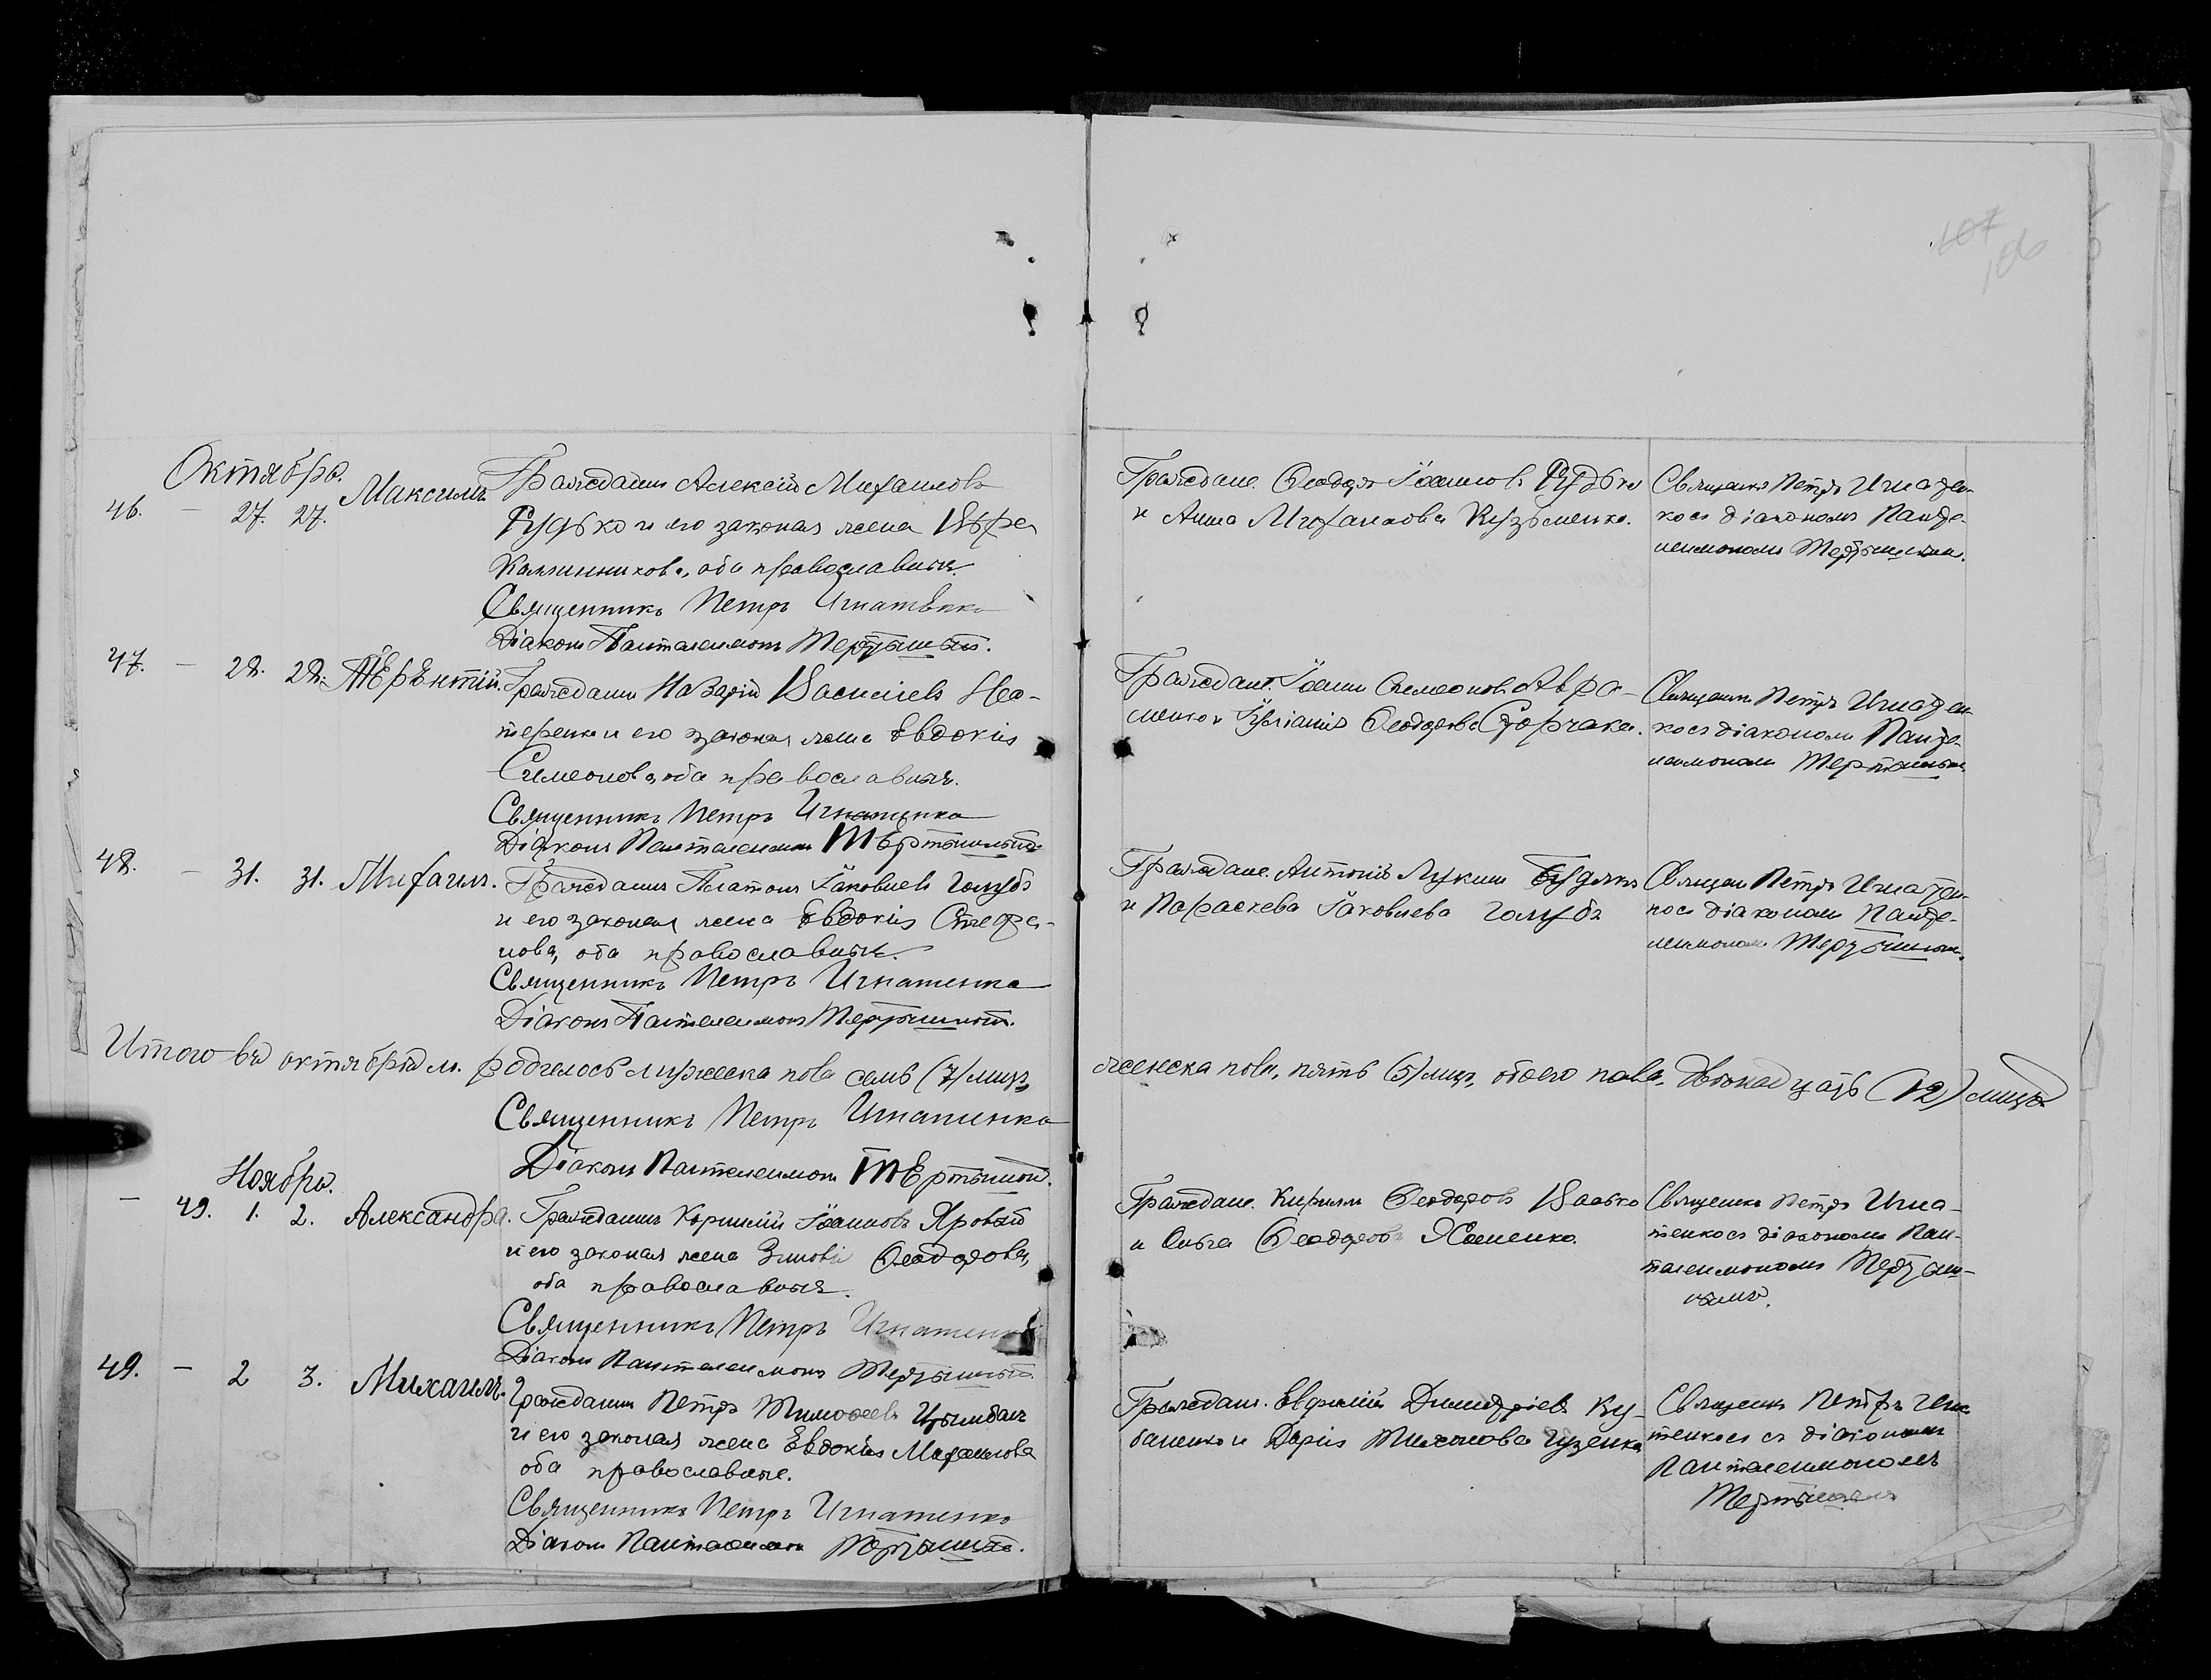 107
106
Октября.
46. — 27. 27. Максимъ.
Гражданинъ Алексій Михаиловъ
Рудько и его законая жена Вѣра
Калинникова, оба православныя.
Священникъ Петръ Игнатенко
Діаконъ Пантелеимонъ Тертышный.
Граждане. Ѳеодоръ Іоанновъ Рудько
и Анна Михаилова Кузьменко.
Священ Петръ Игнатен-
ко съ діакономъ Панте-
леимономъ Тертышнымъ.
47. — 28. 28. Терентій.
Гражданинъ Назарій Васильевъ Не-
теренко и его законая жена Евдокія
Симеонова, оба православныя.
Священникъ Петръ Игнатенко
Діаконъ Пантелеимонъ Тертышный
Граждане. Іоаннъ Симеоновъ Авра-
менко и Іуліанія Ѳеодорова Сторчака.
Священ Петръ Игнатен-
ко съ діакономъ Панте-
леимономъ Тертышным
48. — 31. 31. Михаилъ.
Гражданинъ Платонъ Іаковлевъ Голубъ
и его законая жена Евдокія Стефа-
нова, оба православныя.
Священникъ Петръ Игнатенко
Діаконъ Пантелеимонъ Тертышный.
Граждане. Антоній Лукинъ
и Параскева Іаковлева Голубъ
Священ Петръ Игнатен-
ко съ діакономъ Панте-
леимономъ Тертышным.
Итого въ октябрѣ м. родилось мужеска пола семь (7) лицъ,
женска пола, пять (5) лицъ, обоего пола, двѣнадцать (12) лицъ
Священникъ Петръ Игнатенко
Діаконъ Пантелеимонъ Тертышный.
Ноября.
— 49. 1. 2. Александра.
Гражданинъ Корнилій Іоанновъ Яровый
и его законая жена Зиновія Ѳеодорова,
оба православныя.
Священникъ Петръ Игнатенко
Діаконъ Пантелеимонъ Тертышный.
Граждане. Кириллъ Ѳеодоровъ Васько
и Ольга Ѳеодорова
Священникъ Петръ Игна-
тенко съ діакономъ Пан-
телеимономъ Тертыш-
нымъ.
49. — 2 3. Михаилъ.
Гражданинъ Петръ Тимоѳеевъ Цымбалъ
и его законая жена Евдокія Михаилова
оба православные.
Священникъ Петръ Игнатенко
Діаконъ Пантелеимонъ Тертышный.
Граждане. Евфимій Димитріевъ Ку-
баненко и Дарія Тихонова Гуденко
Священникъ Петръ Игна
тенко съ діакономъ
Пантелеимономъ
Тертышнымъ